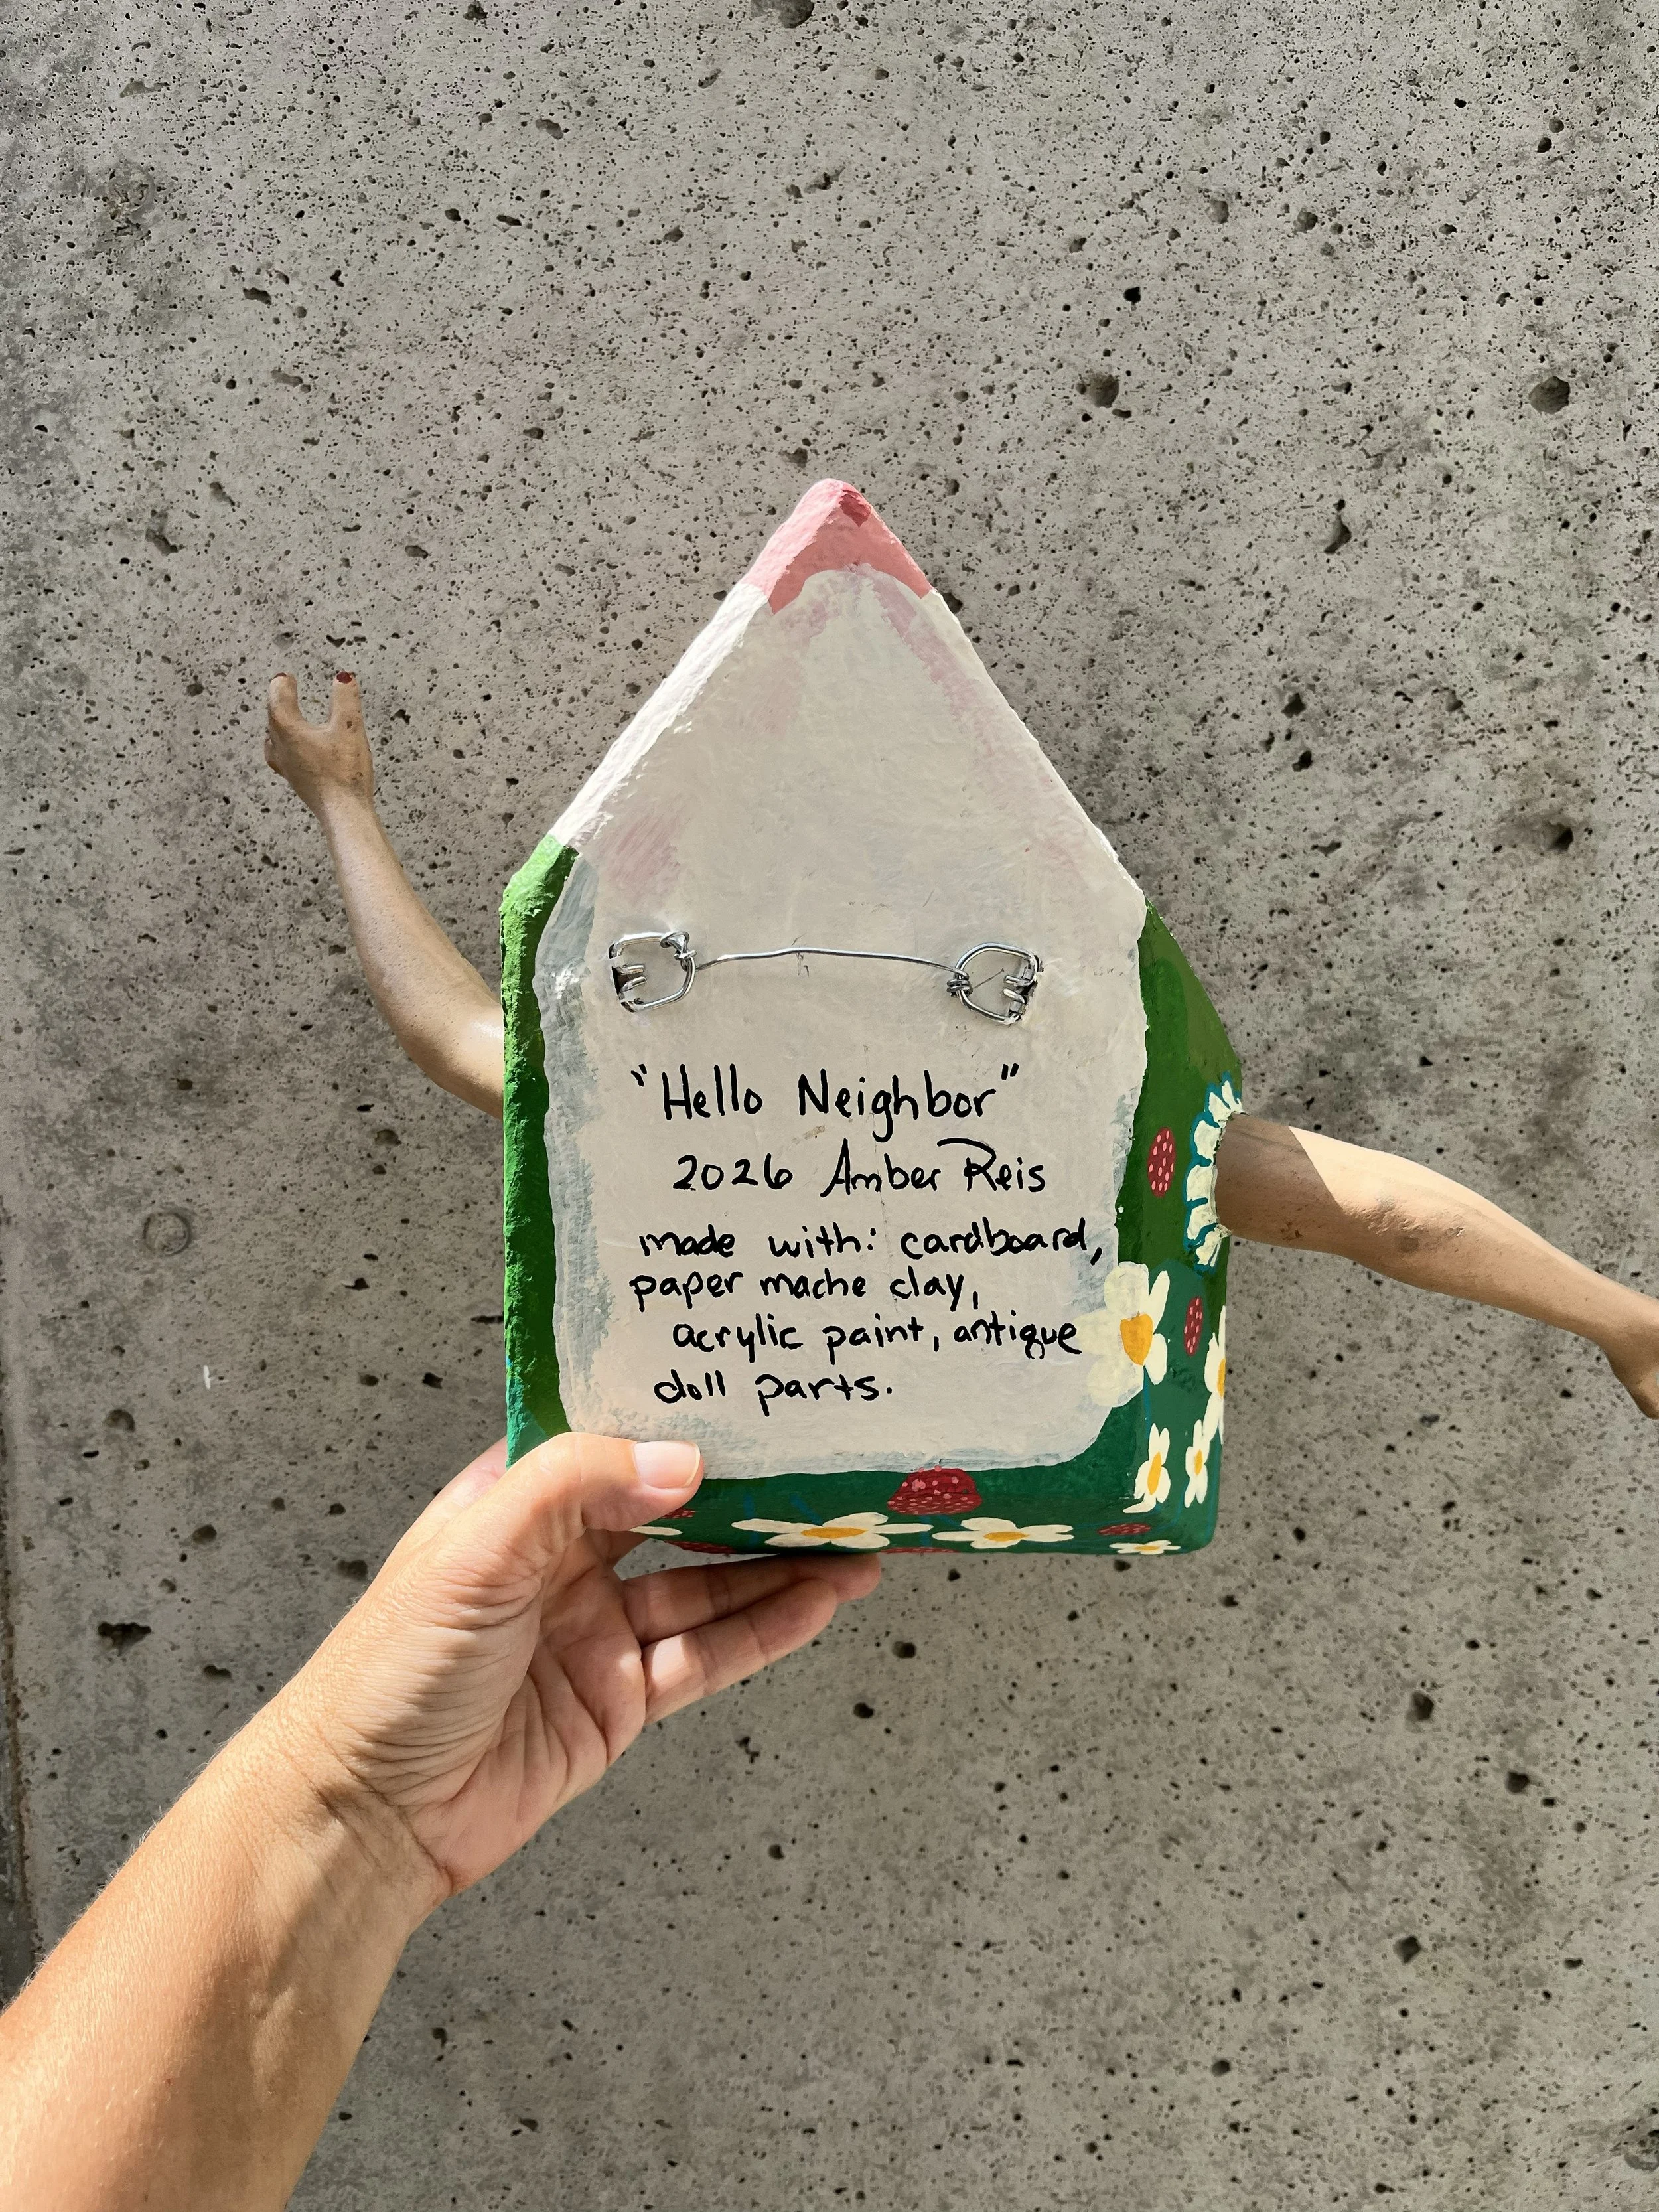 "Hello Neighbor"
2026 Amber Reis
made with: cardboard,
paper mache clay,
acrylic paint, antique
doll parts.